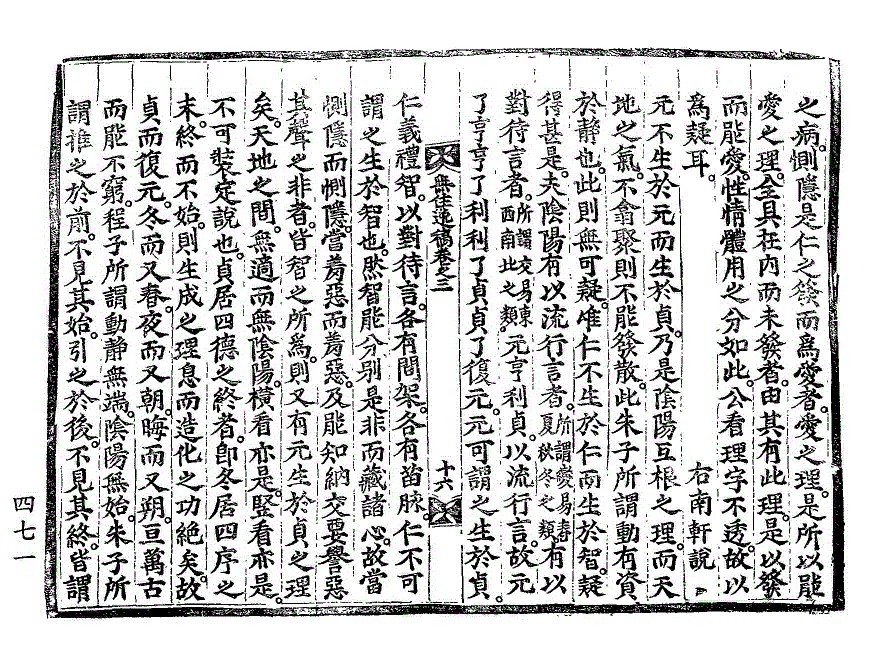 之病。惻隱是仁之發而爲愛者。愛之理。是所以能
愛之理。全具在內而未發者。由其有此理。是以發
而能愛。性情體用之分如此。公看理字不透。故以
爲疑耳。 右南軒說
元不生於元而生於貞。乃是陰陽互根之理。而天
地之氣。不翕聚則不能發散。此朱子所謂動有資
於靜也。此則無可疑。惟仁不生於仁而生於智。疑
得甚是。夫陰陽有以流行言者。所謂變易。春夏秋冬之類。有以
對待言者。所謂交易。東西南北之類。元亨利貞。以流行言。故元
了亨。亨了利。利了貞。貞了復元。元可謂之生於貞。
無住逸稿卷之三 十六
仁義禮智。以對待言。各有間架。各有苗脉。仁不可
謂之生於智也。然智能分別是非而藏諸心。故當
惻隱而惻隱。當羞惡而羞惡。及能知納交要譽惡
其聲之非者。皆智之所爲。則又有元生於貞之理
矣。天地之間。無適而無陰陽。橫看亦是。竪看亦是。
不可裝定說也。貞居四德之終者。卽冬居四序之
末。終而不始。則生成之理息而造化之功絶矣。故
貞而復元。冬而又春。夜而又朝。晦而又朔。亘萬古
而能不窮。程子所謂動靜無端。陰陽無始。朱子所
謂推之於前。不見其始。引之於後。不見其終。皆謂
四七一